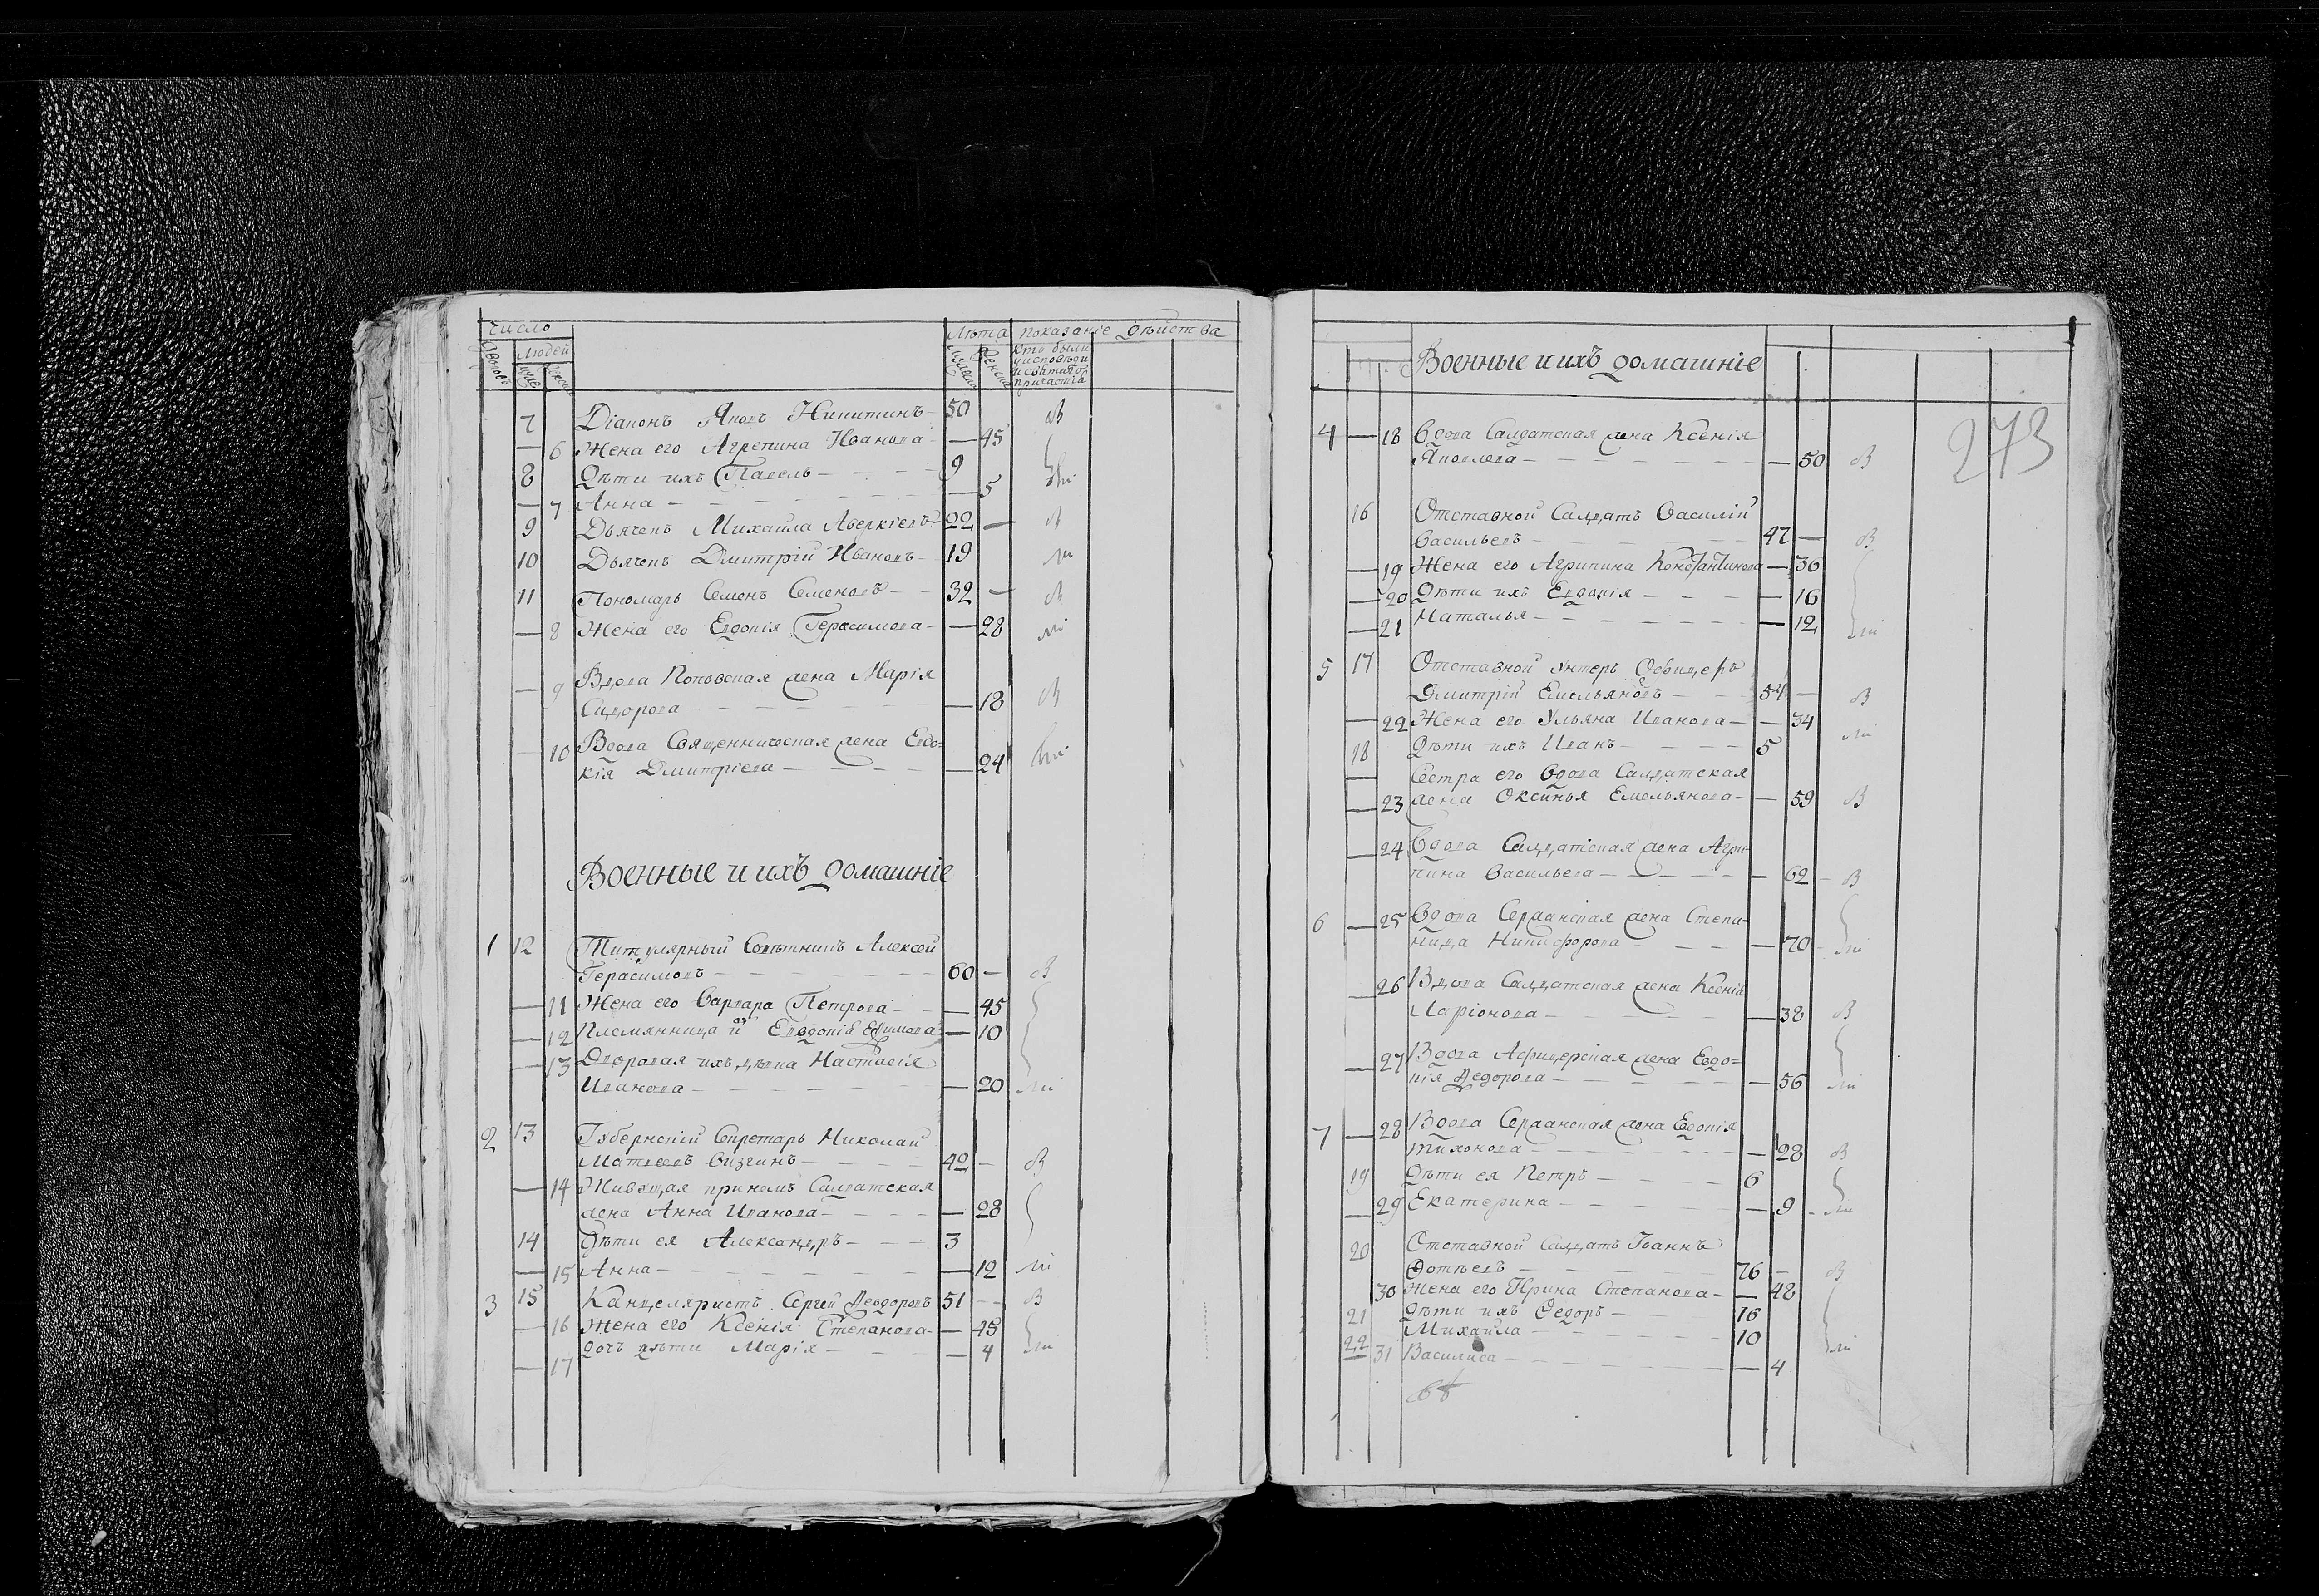 Число Лѣта Показаніе дѣйства
Дворовъ Людей Мужеска Женска Кто были
у исповѣди
и святаго
причастія
7 Діаконъ Яковъ Никитинъ 50 В
— 6 Жена его Агрепина Иванова — 45
8 Дѣти ихъ Павелъ 9
— 7 Анна — 5
9 Дьячекъ Михайла Аверкіевъ 22 — В
10 Дьячекъ Дмитрій Ивановъ 19
11 Пономарь Семенъ Семеновъ 32 — В
— 8 Жена его Евдокія Герасимова — 28
— 9 Вдова Поповская жена Марія
Сидорова — 18 В
— 10 Вдова Священническая жена Евдо=
кія Дмитріева — 24
Военные и ихъ домашніе
1 12 Титулярный Совѣтникъ Алексей
Герасимовъ 60 — В
— 11 Жена его Варвара Петрова — 45
— 12 Племянница Евдокія Ефимова — 10
— 13 Дворовая ихъ дѣвка Настасія
Иванова — 20
2 13 Губернскій Секретарь Николай
Матвеевъ 42 — В
— 14 Живущая при немъ Салдатская
жена Анна Иванова — 28
14 Дѣти ея Александръ 3
— 15 Анна — 12
3 15 Канцеляристъ Сергей Ѳеодоровъ 51 — В
— 16 Жена его Ксенія Степанова — 45
— 17 дочь Марія — 4
Военные и ихъ домашніе
273
4 — 18 Вдова Салдатская жена Ксенія
Яковлева — 50 В
16 Отставной Салдатъ Василій
Васильевъ 47 — В
— 19 Жена его Агрипина Константинова — 36
— 20 Дѣти ихъ Евдокія — 16
— 21 Наталья — 12
5 17 Отставной Унтеръ Офицеръ
Дмитрій Емельяновъ 54 — В
— 22 Жена его Ульяна Иванова — 34
18 Дѣти ихъ Иванъ 5
— Сестра его Вдова Салдатская
— 23 жена Оксинья Емельянова — 59 В
— 24 Вдова Салдатская жена Агри-
пина Васильева — 62 — В
6 — 25 Вдова Сержанская жена Степа-
нида Никифорова — 70
— 26 Вдова Салдатская жена Ксенія
Ларіонова — 38 В
— 27 Вдова Афицерская жена Евдо=
кія Ѳедорова — 56
7 — 28 Вдова Сержанская жена Евдокія
Тихонова — 28 В
19 Дѣти ея Петръ 6
— 29 Екатерина — 9
20 Отставной Салдатъ Іоаннъ
Фотѣевъ 76 — В
30 Жена его Ирина Степанова — 48
21 Дѣти ихъ Ѳедоръ 16
22 Михайла 10
31 Василиса — 4